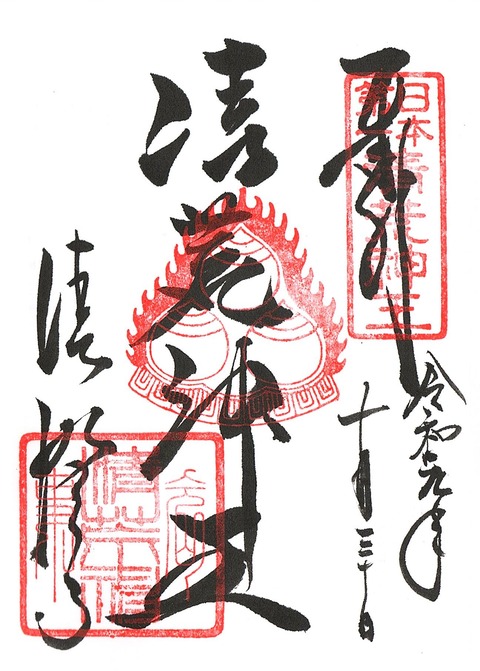 奉拝
日本第一清荒神王
令和元年
十月三十日
清荒神王
清澄寺